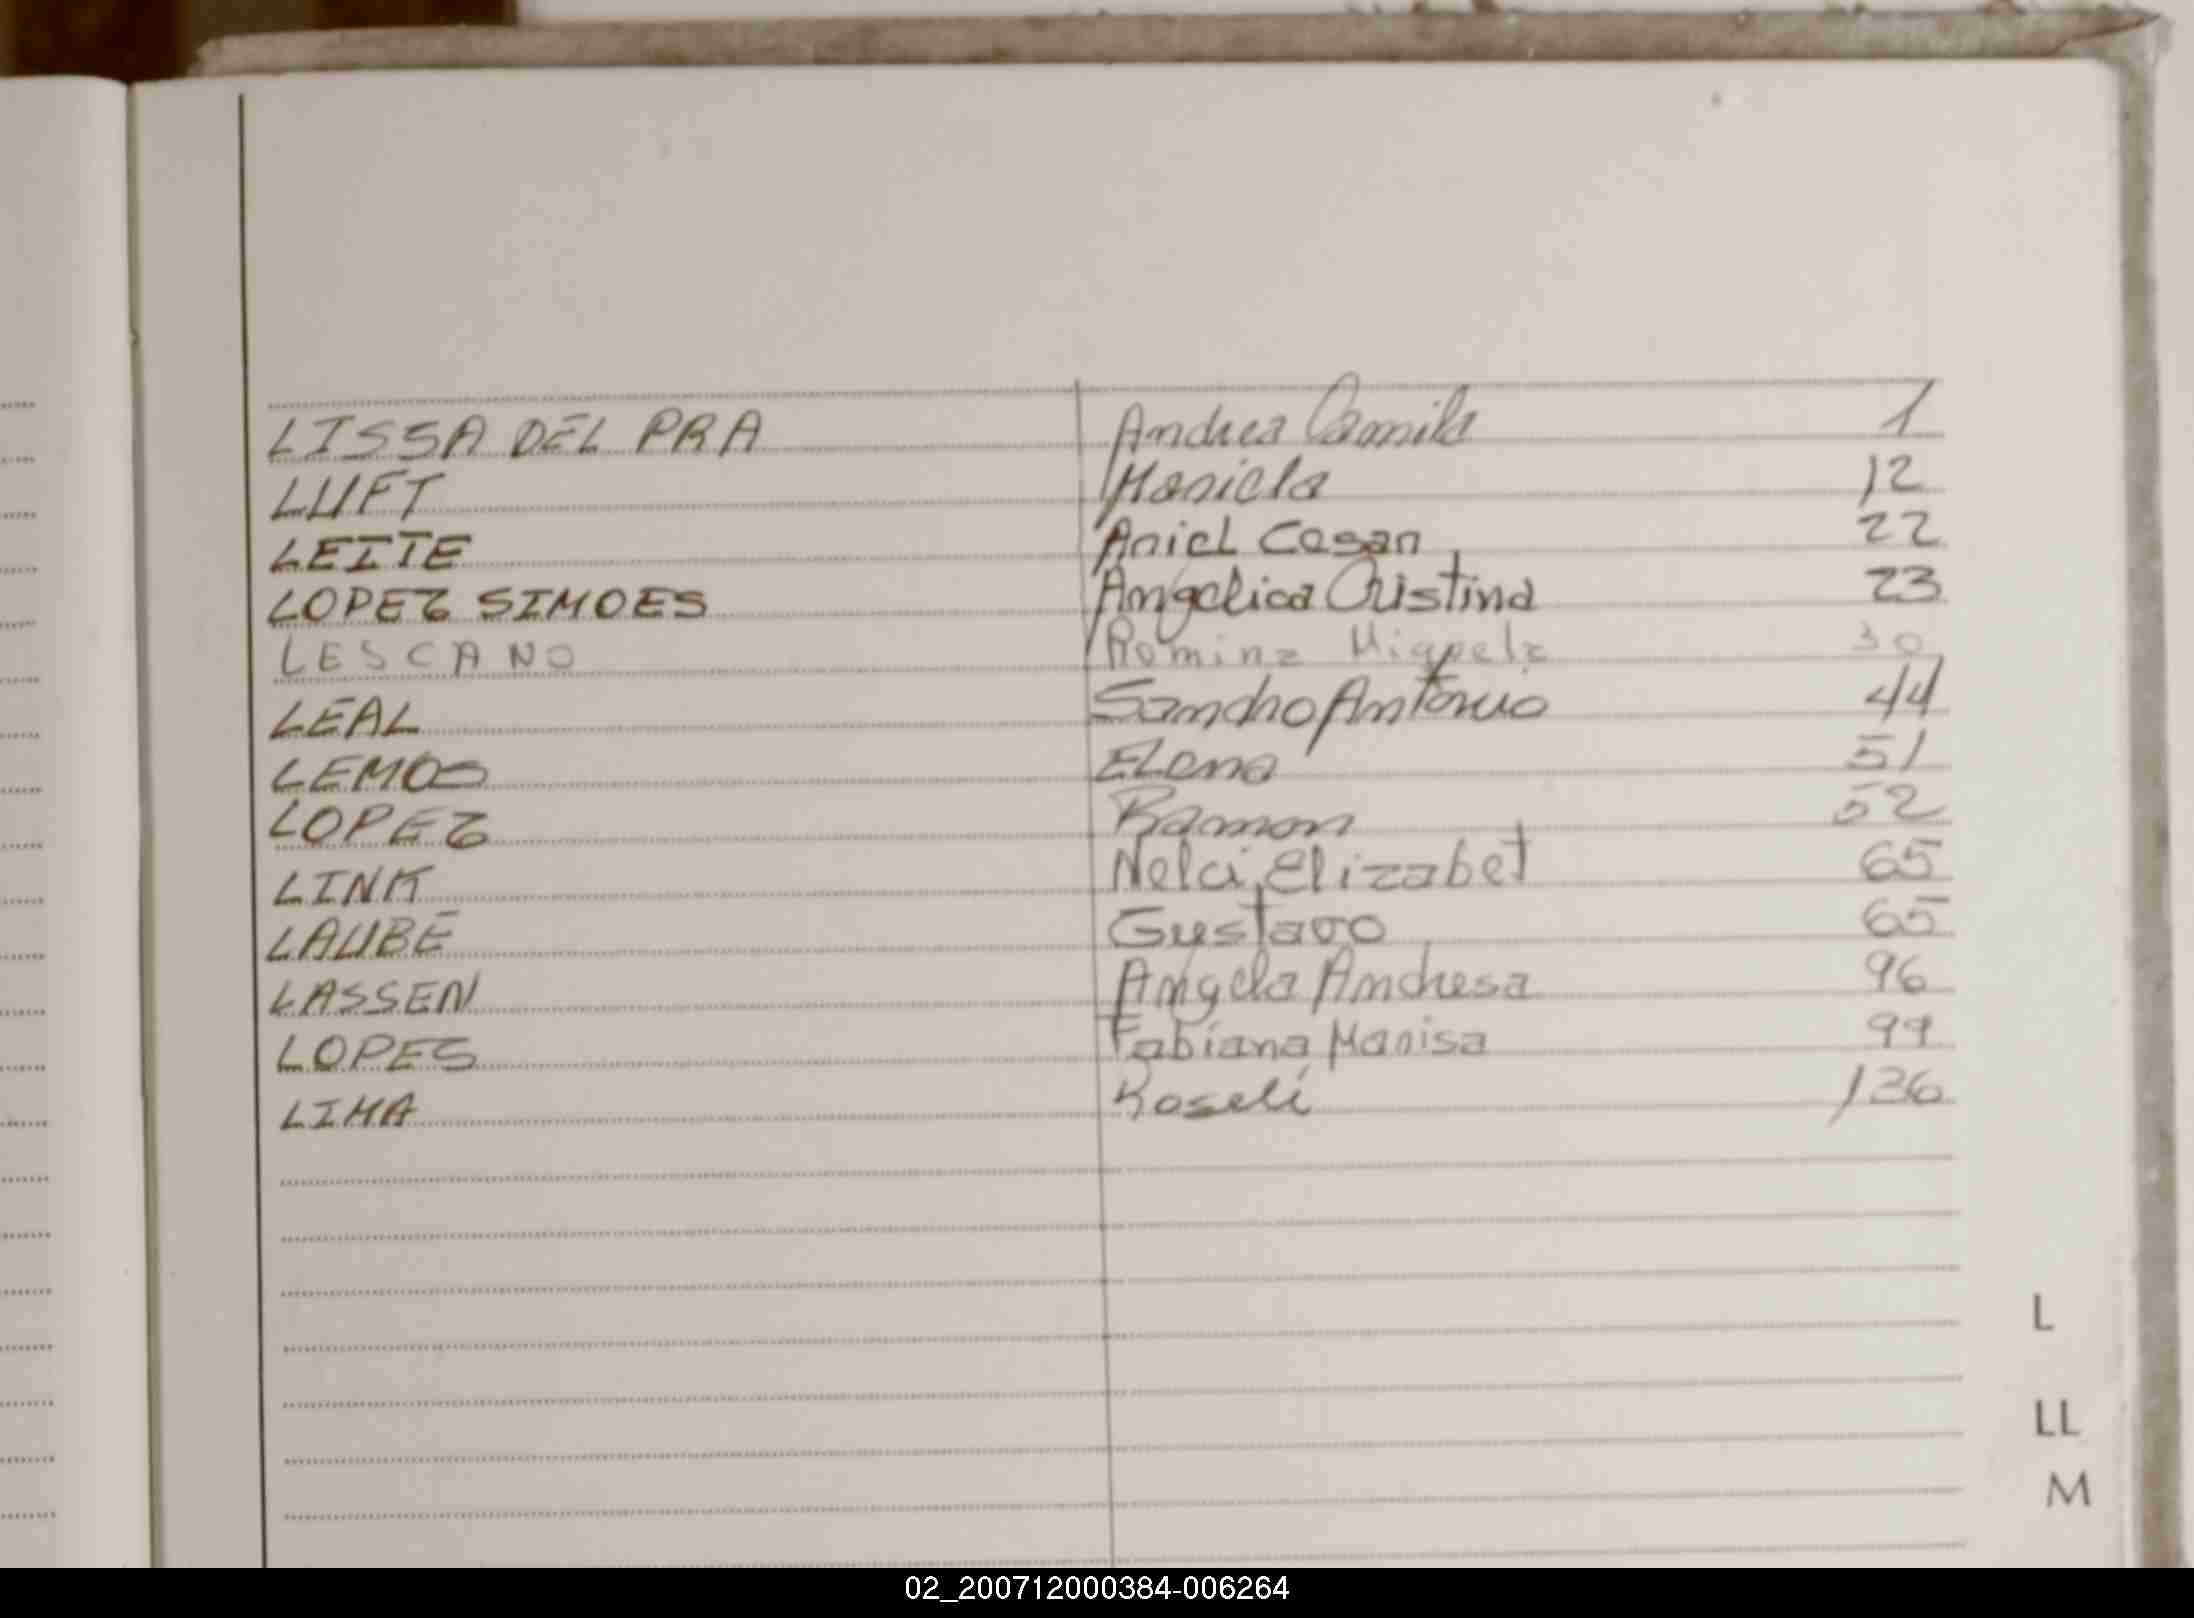 LISSA DEL PRA Andrea Camila 1
LUFT Mariela 12
LEITE Ariel Cesar 22
LOPEZ SIMOES Angelica Cristina 23
LESCANO Romina Miqaela 30
LEAL Sandro Antonio 44
LEMOS Elena 51
LOPEZ Ramon 52
LINK Nelci Elizabet 65
LAUBE Gustavo 65
LASSEN Angela Andresa 96
LOPES Fabiana Marisa 99
LIMA Roseli 136
L
LL
M
02_200712000384-006264